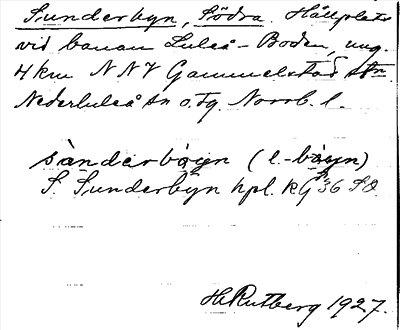 Sunderbyn, Södra. Hållplats
vid banan Luleå-Boden, ung.
4 km NNV Gammelstad stn.
Nederluleå sn o. tg. Norrb. l.
sànderbỳn (l. -bỳn)
S. Sunderbyn hpl. kG 36 SO
H. Rutberg 1927.